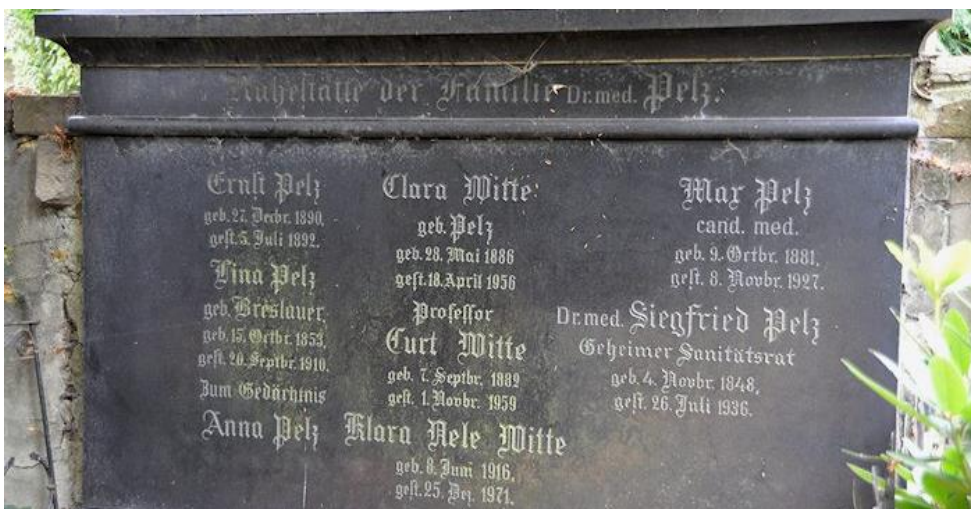 Ruhestätte der Familie Dr. med. Pelz.
Ernst Pelz
geb. 27. Decbr. 1890,
gest. 5. Juli 1892.
Lina Pelz
geb. Breslauer,
geb. 15. Octbr. 1853,
gest. 20. Septbr. 1910.
Zum Gedächtnis
Anna Pelz
Clara Witte
geb. Pelz
geb. 28. Mai 1886
gest. 18. April 1956
Professor
Curt Witte
geb. 7. Septbr. 1882
gest. 1. Novbr. 1959
Klara Nele Witte
geb. 8. Juni 1916,
gest. 25. Dez. 1971.
Max Pelz
cand. med.
geb. 9. Octbr. 1881,
gest. 8. Novbr. 1927.
Dr. med. Siegfried Pelz
Geheimer Sanitätsrat
geb. 4. Novbr. 1848,
gest. 26. Juli 1936.